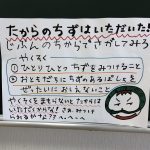 たからのちずはいただいた!!
じぶんのちからでさがしてみろ
やくそく
① ひとりひとつちずをみつけること
② おともだちにちずのあるばしょを
ぜったいにおしえないこと
やくそくをまもらないとたからは
いただくからな! さあみつけ
られるかな?